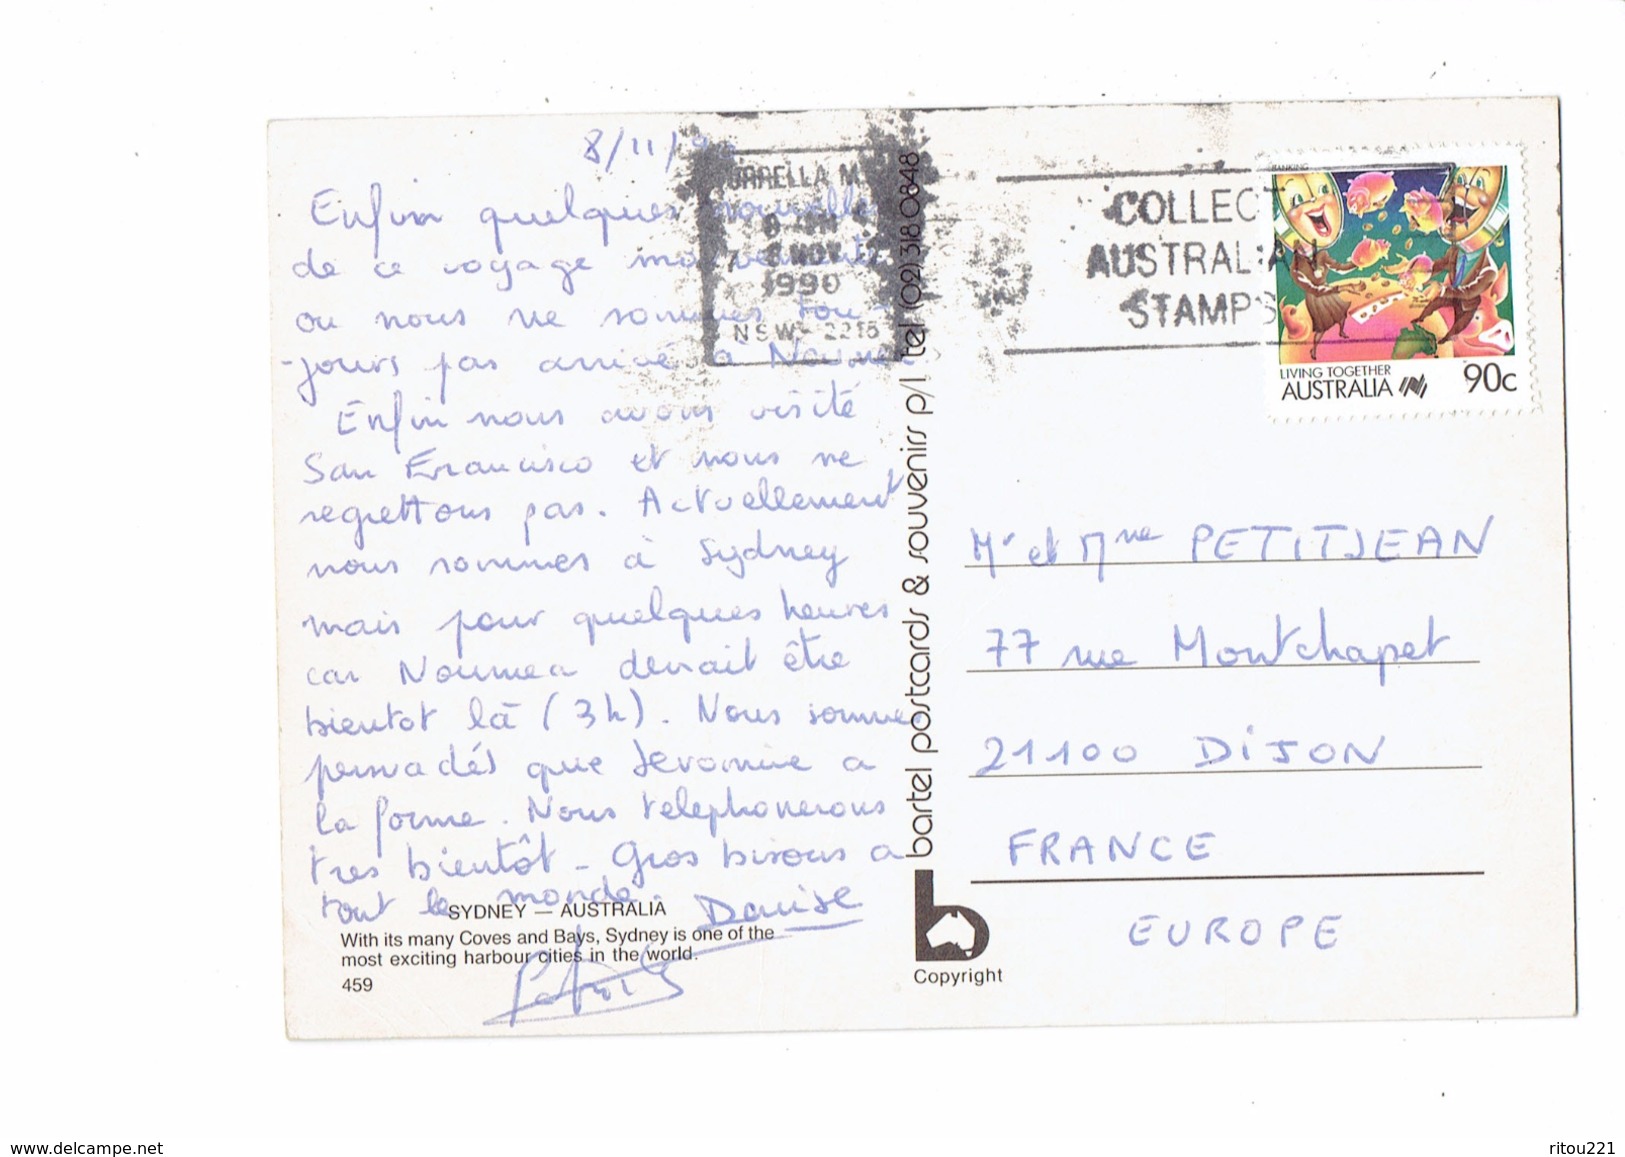 8/11/90
Enfin quelques nouvelles
de ce voyage mouvementé
ou nous ne sommes tou-
-jours pas arrivé à Noumea.
Enfin nous avons visité
San Francisco et nous ne
regrettons pas. Actuellement
nous sommes à Sydney
mais pour quelques heures
car Noumea devrait être
bientot là (3h). Nous sommes
persuadés que Jeromine a
la forme. Nous telephonerons
tres bientôt - Gros bisous a
tout le monde. Denise
Patrick
SYDNEY — AUSTRALIA
With its many Coves and Bays, Sydney is one of the
most exciting harbour cities in the world.
459
TURRELLA M.C
8 NOV
1990
NSW - 2216
COLLECT
AUSTRALIAN
STAMPS
BANKING
LIVING TOGETHER
AUSTRALIA 90c
bartel postcards & souvenirs p/l tel (02) 318 0848
Copyright
Mr et Mme PETITJEAN
77 rue Montchapet
21100 DIJON
FRANCE
EUROPE
www.delcampe.net
ritou221